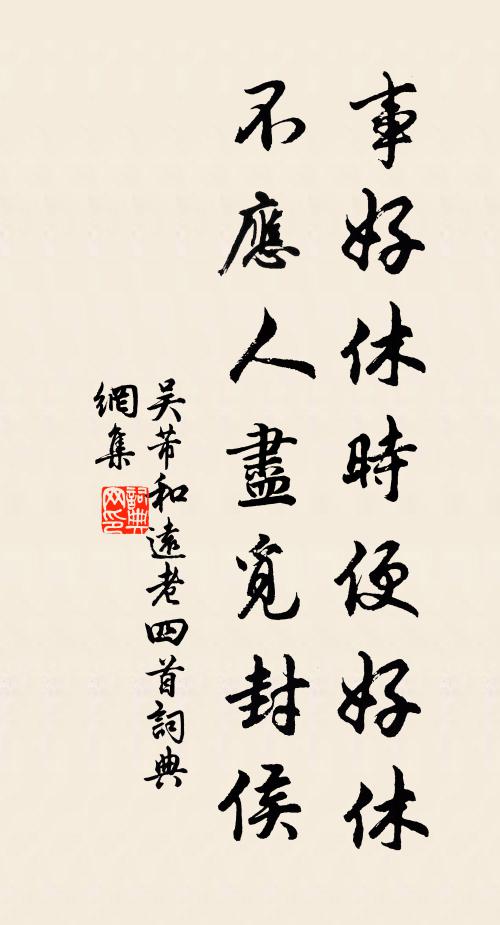 事好休時便好休
不應人盡覓封侯
吳芾和遠老四首詞典
網集
詞典網印